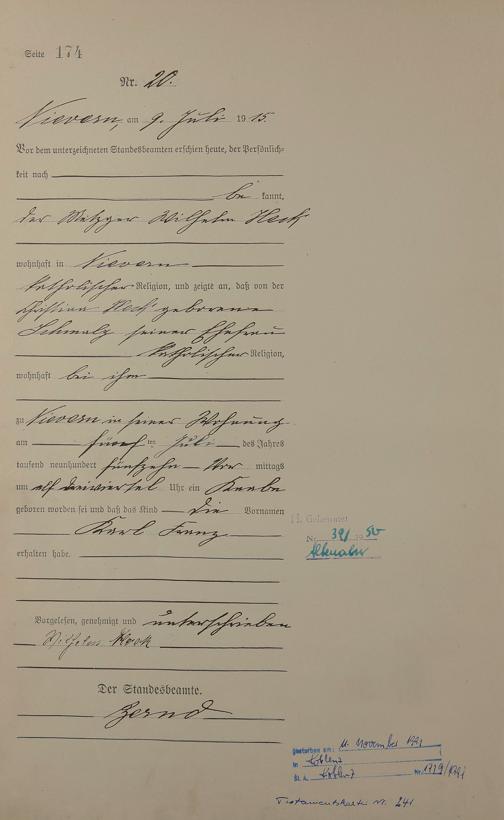 Seite 174
Nr. 20.
Nievern, am 9. Juli 1915.
Vor dem unterzeichneten Standesbeamten erschien heute, der Persönlich-
keit nach
be kannt,
der Metzger Wilhelm Heck
wohnhaft in Nievern
katholischer Religion, und zeigte an, daß von der
Christina Heck geborene
Schmalz seiner Ehefrau
katholischer Religion,
wohnhaft bei ihm
zu Nievern in seiner Wohnung
am fünften Juli des Jahres
tausend neunhundert fünfzehn Vor mittags
um elf dreiviertel Uhr ein Knabe
geboren worden sei und daß das Kind die Vornamen
Karl Franz
erhalten habe.
H. Geheiratet
Nr. 39/1950
Vorgelesen, genehmigt und unterschrieben
Wilhelm Heck
Der Standesbeamte.
Zernd
gestorben am: 11. November 1991
in Koblenz
St. A. Koblenz Nr. 1779/1991
Testamentskartei Nr. 241